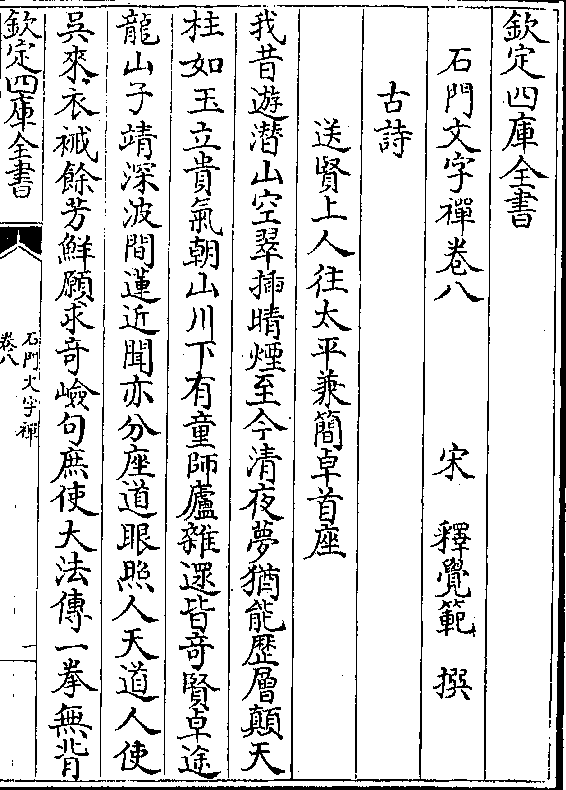 欽定四庫全書
石門文字禪卷八
宋 釋覺範 撰
古詩
送賢上人往太平兼簡卓首座
我昔遊潜山空翠揷晴煙至今清夜夢猶能歷層顛天
柱如玉立貴氣朝山川下有童師廬雜還皆竒賢卓途
龍山子靖深波間蓮近聞亦分座道眼照人天道人使
吳來衣裓餘芳鮮願求竒嶮句庶使大法傳一拳無背
欽定四庫全書
石門文字禪
卷八
一